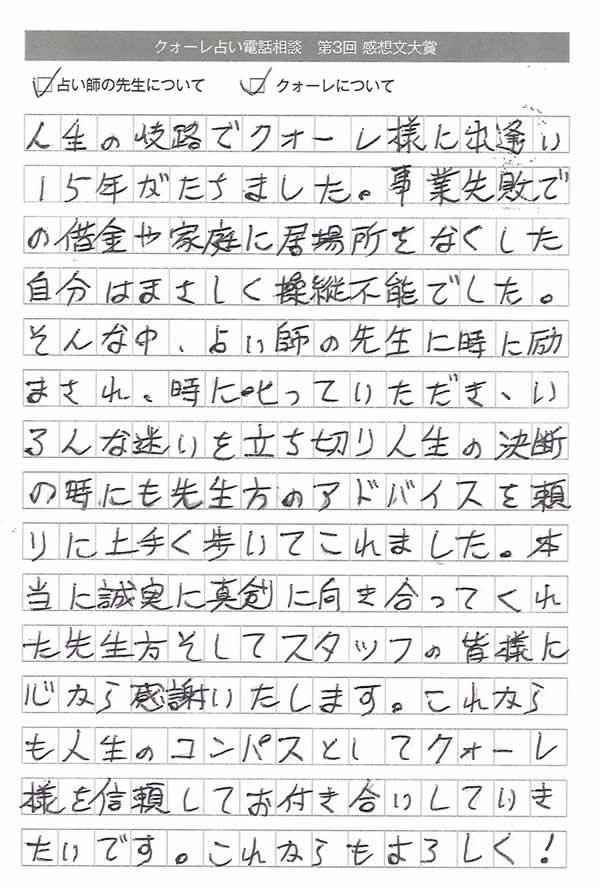 クォーレ占い電話相談　第3回 感想文大賞
☑占い師の先生について　☑クォーレについて
人生の岐路でクォーレ様に出逢い
15年がたちました。事業失敗で
の借金や家庭に居場所をなくした
自分はまさしく操縦不能でした。
そんな中、占い師の先生に時に励
まされ、時に叱っていただき、い
ろんな迷いを立ち切り人生の決断
の時にも先生方のアドバイスを頼
りに上手く歩いてこれました。本
当に誠実に真剣に向き合ってくれ
た先生方そしてスタッフの皆様に
心から感謝いたします。これから
も人生のコンパスとしてクォーレ
様を信頼してお付き合いしていき
たいです。これからもよろしく!